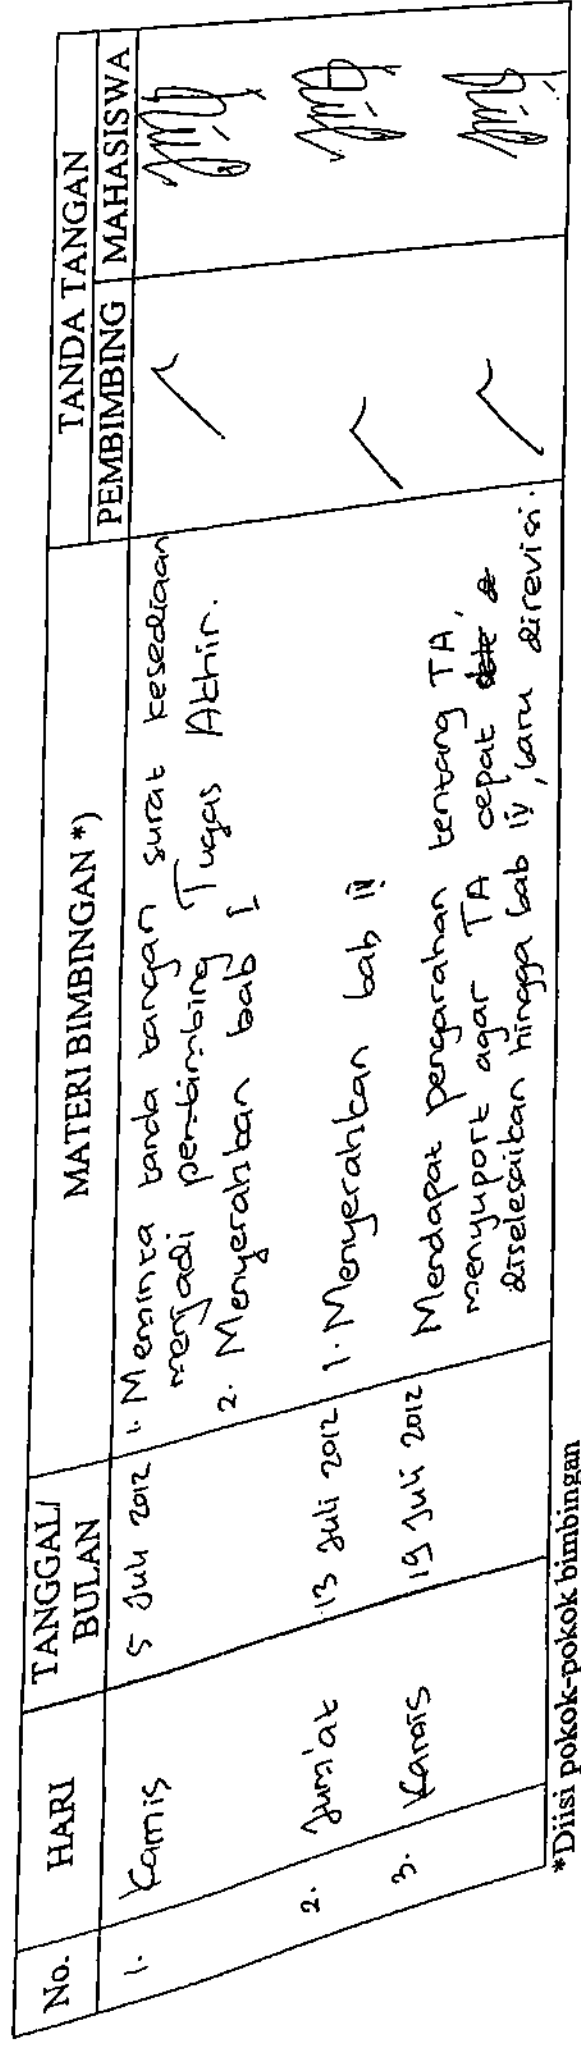 No. HARI TANGGAL/ BULAN MATERI BIMBINGAN *) TANDA TANGAN
PEMBIMBING MAHASISWA
1. Kamis 5 Juli 2012 1. Meminta tanda tangan surat kesediaan
menjadi pembimbing Tugas Akhir.
2. Menyerahkan bab I
2. Jum'at 13 Juli 2012 1. Menyerahkan bab
3. Kamis 19 Juli 2012 Mendapat pengarahan tentang TA,
menyuport agar TA cepat
diselesaikan hingga bab IV, baru direvisi.
*Diisi pokok-pokok bimbingan